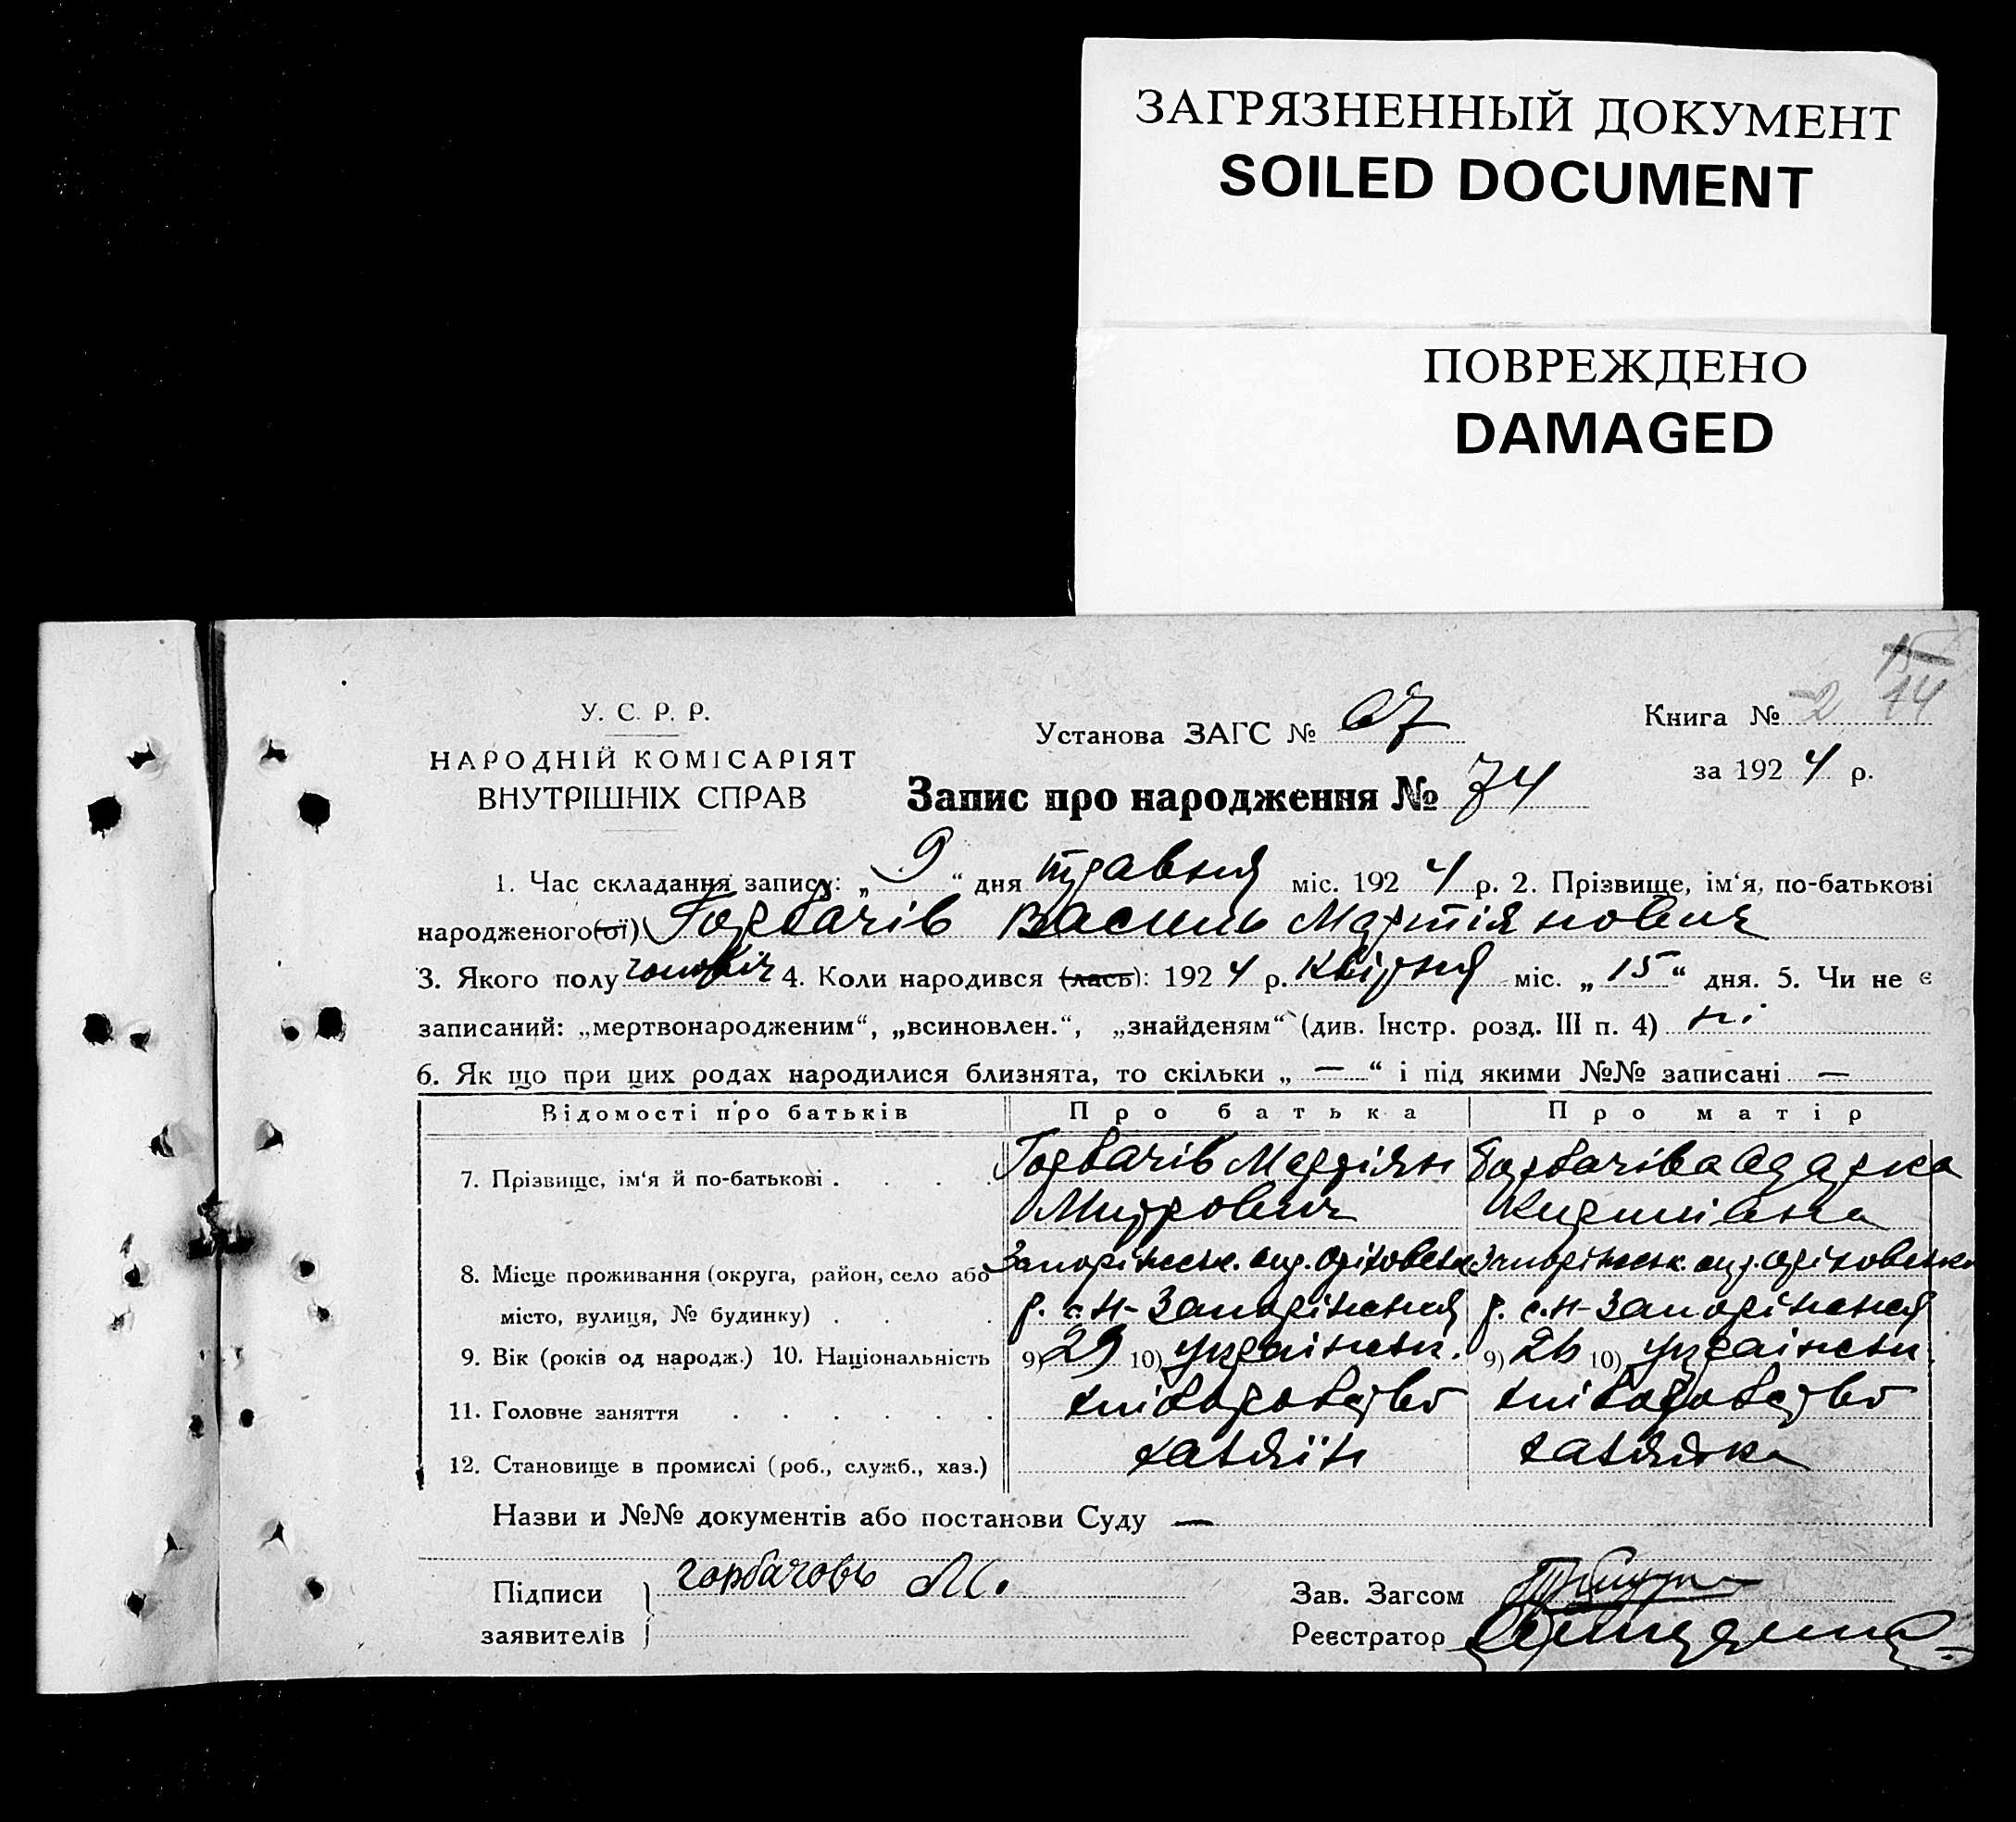 ЗАГРЯЗНЕННЫЙ ДОКУМЕНТ
SOILED DOCUMENT
ПОВРЕЖДЕНО
DAMAGED
15
У. С. Р. Р.
НАРОДНІЙ КОМІСАРІЯТ
ВНУТРІШНІХ СПРАВ
Установа ЗАГС № 67
Книга № 2 14
за 1924 р.
Запис про народження № 74
1. Час складання запису: „ 9 “ дня травня міс. 1924 р. 2. Прізвище, ім‘я, по-батькові
народженого(ої) Горбачів Василь Мартіянович
3. Якого полу чоловіч 4. Коли народився (лась): 1924 р. Квітня міс. „ 15 “ дня. 5. Чи не є
записаний: „мертвонародженим“, „всиновлен.“, „знайденям“ (див. Інстр. розд. III п. 4) ні
6. Як що при цих родах народилися близнята, то скільки „ — “ і під якими №№ записані —
Відомості про батьків Про батька Про матір
7. Прізвище, ім‘я й по-батькові . . . . Горбачів Мартіян Горбачіва Одарка
Кирилівна
8. Місце проживання (округа, район, село або Запоріжськ. окр. Оріховськ Запоріжськ. окр. Оріховськ
місто, вулиця, № будинку) . . . р. с. Н-Запоріжжя р. с. Н-Запоріжжя
9. Вік (років од народж.) 10. Національність 9) 29 10) українськ. 9) 26 10) українськ.
11. Головне заняття . . . . . . хліборобство хліборобство
12. Становище в промислі (роб., служб., хаз.) хазяїн хазяйка
Назви и №№ документів або постанови Суду —
Підписи горбачовь М.
заявителів
Зав. Загсом
Реєстратор